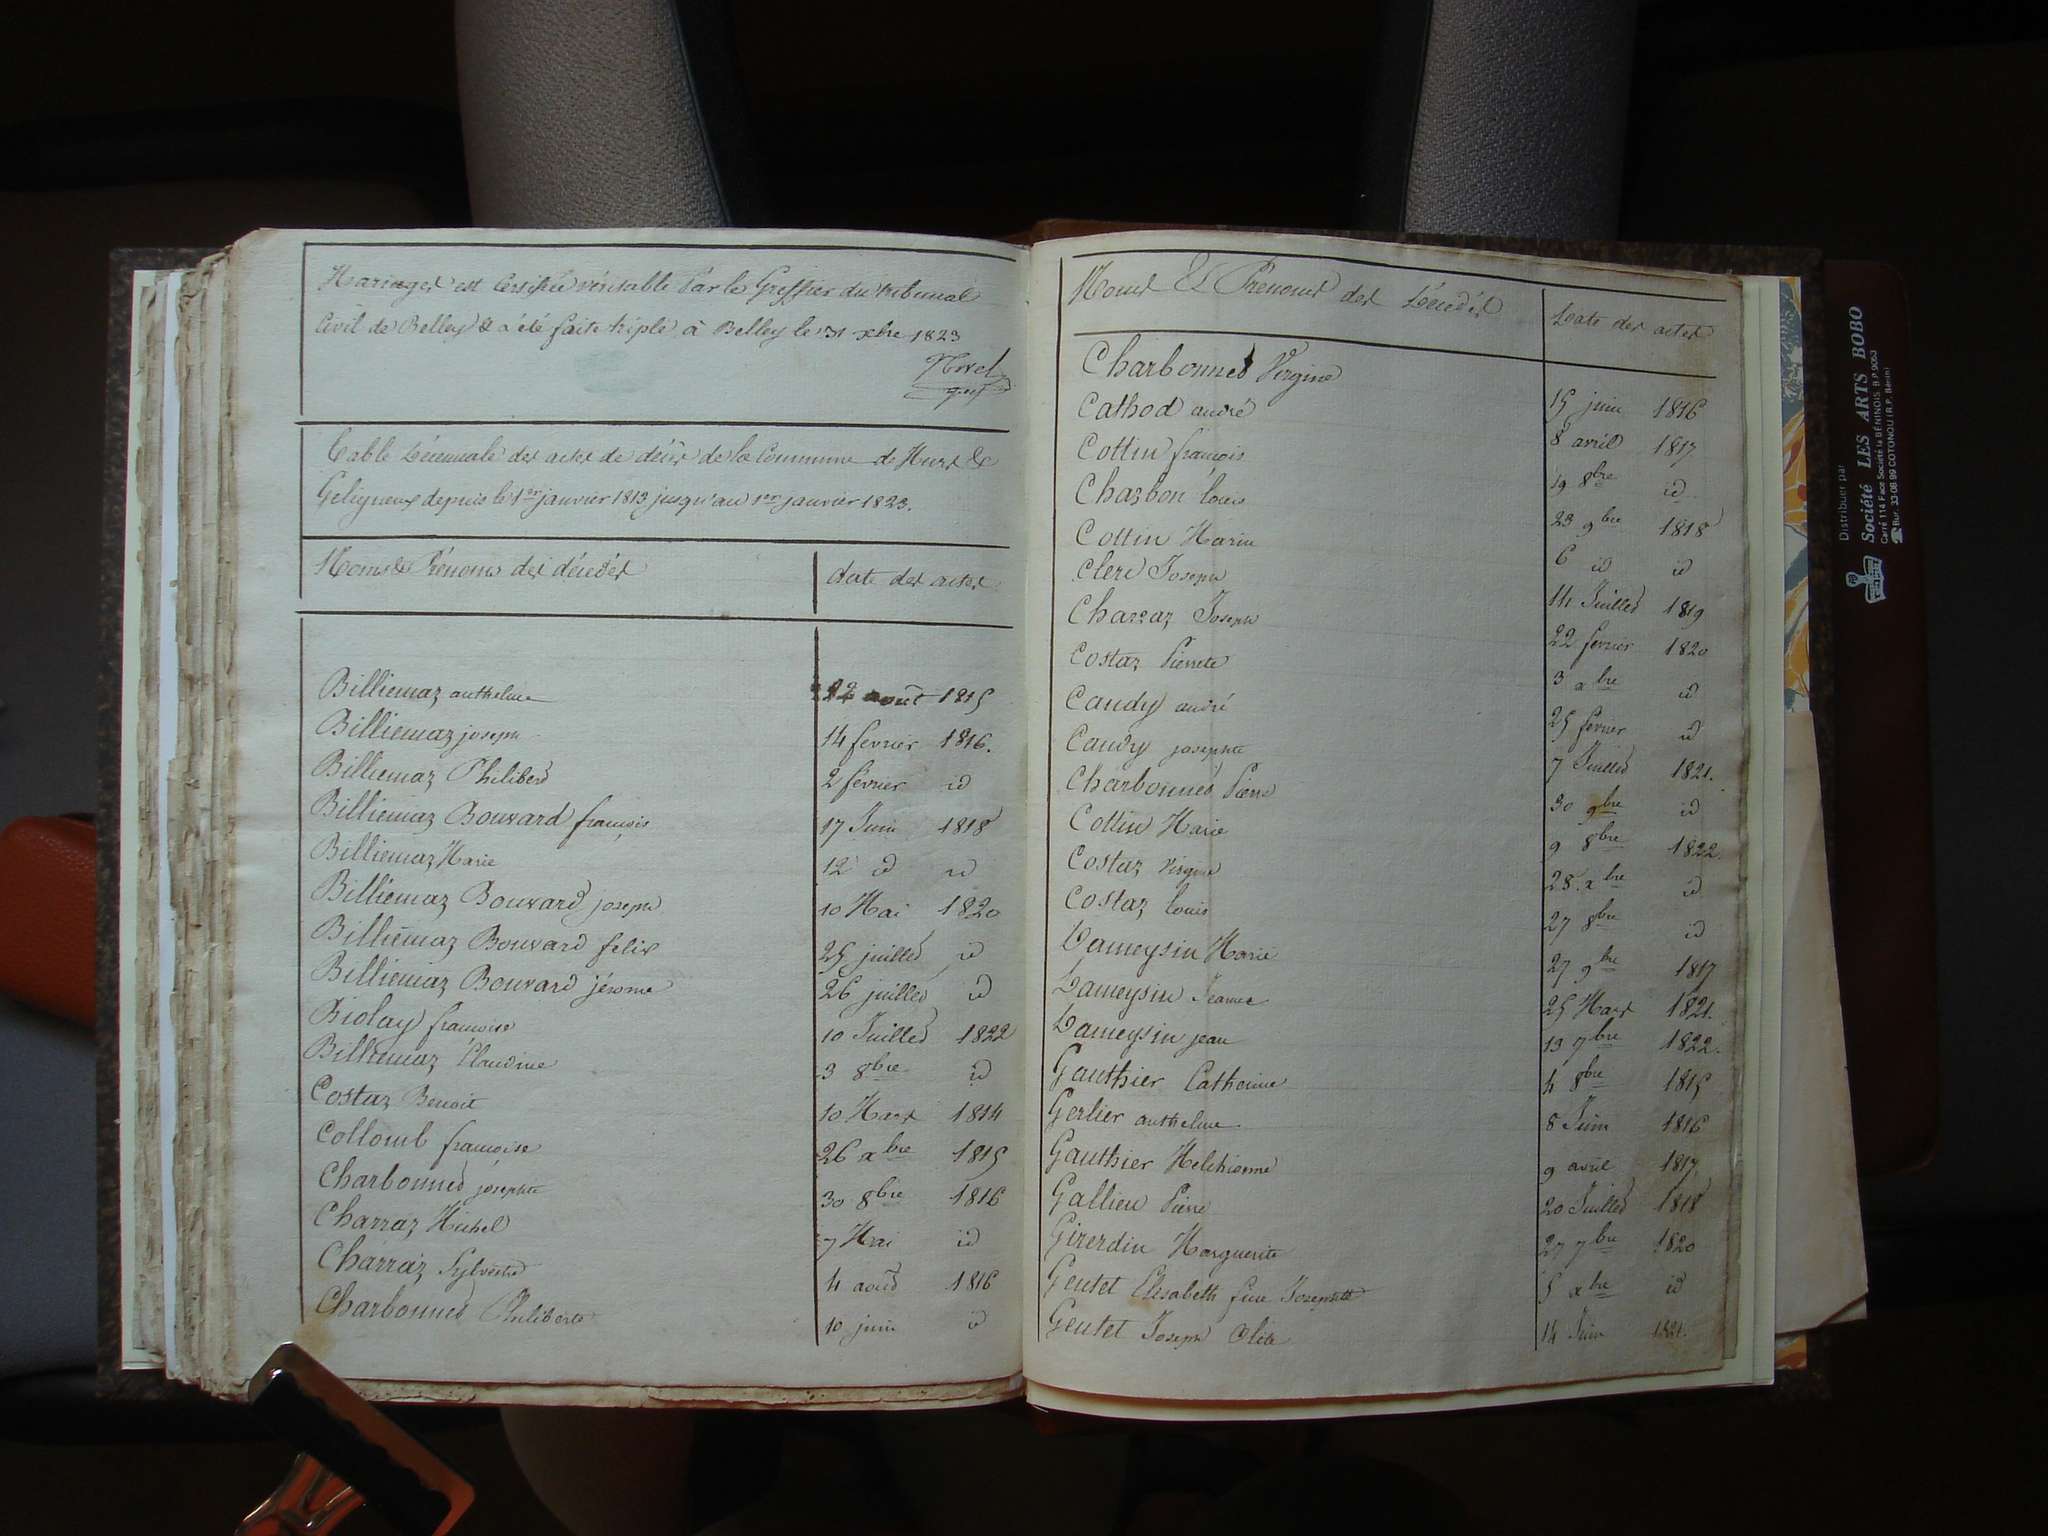 Mariages est Certifiée véritable Par le Greffier du tribunal
Civil de Belley & a été faite triple, à Belley le 31 xbre 1823
greff
Table Décennale des actes de décès de la Commune de Murs &
Geligneux depuis le 1er janvier 1813 jusqu'au 1er janvier 1823.
Noms & Prénoms des décédés date des actes
Billiemaz anthelme août 1815
Billiemaz joseph 14 fevrier 1816.
Billiemaz Philibert 2 février id
Billiemaz Bouvard françois 17 Juin 1818
Billiemaz Marie 12 id id
Billiemaz Bouvard joseph 10 Mai 1820
Billiemaz Bouvard felix 25 juillet id
Billiemaz Bouvard jérome 26 juillet id
Biolay françoise 10 Juillet 1822
Billiemaz Claudine 3 8bre id
Costaz Benoit 10 Mars 1814
Collomb françoise 26 xbre 1815
Charbonnet josephte 30 8bre 1816
Charraz Michel 7 Mai id
Charraz Sylvestre 4 août 1816
Charbonnet Philiberte 10 juin id
Noms & Prenoms des Décédés Date des actes
Charbonnet Virgine 15 juin 1816
Cathod andré 8 avril 1817
Cottin françois 19 8bre id
Charbon louis 23 9bre 1818
Cottin Marie 6 id id
Clerc Joseph 14 Juillet 1819
Charraz Joseph 22 fevrier 1820
Costaz Pierrete 3 xbre id
Candy andré 25 fevrier id
Candy josephte 7 Juillet 1821.
Charbonnet Pierre 30 9bre id
Cottin Marie 9 8bre 1822.
Costaz Virgine 28 xbre id
Costaz louis 27 8bre id
Dameysin Marie 27 9bre 1817
Dameysin Jeanne 25 Mars 1821.
Dameysin jean 13 7bre 1822.
Gauthier Catherine 4 8bre 1815
Gerlier anthelme 8 Juin 1816
Gauthier Melchionne 9 avril 1817
Gallien Pierre 20 Juillet 1818
Girerdin Marguerite 27 7bre 1820
Gentet Elisabeth Josephte 5 xbre id
Gentet Joseph 14 Juin 1821.
Distribuer par
Société LES ARTS BOBO
Carré 114 Face Société la BÉNINOIS B.P. 9063
Bur. 33-08-99 COTONOU (R.P. Bénin)